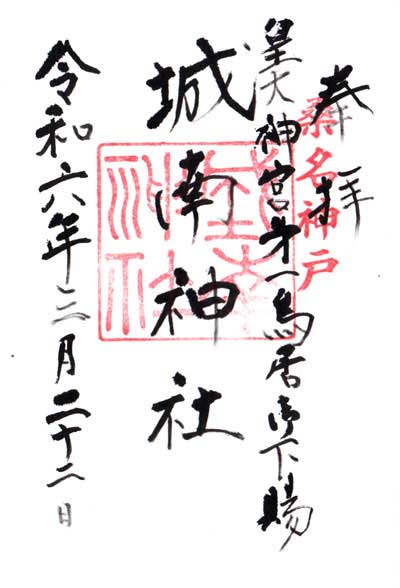 奉拝
桑名神戸
皇大神宮第一鳥居御下賜
城南神社
令和六年三月二十二日